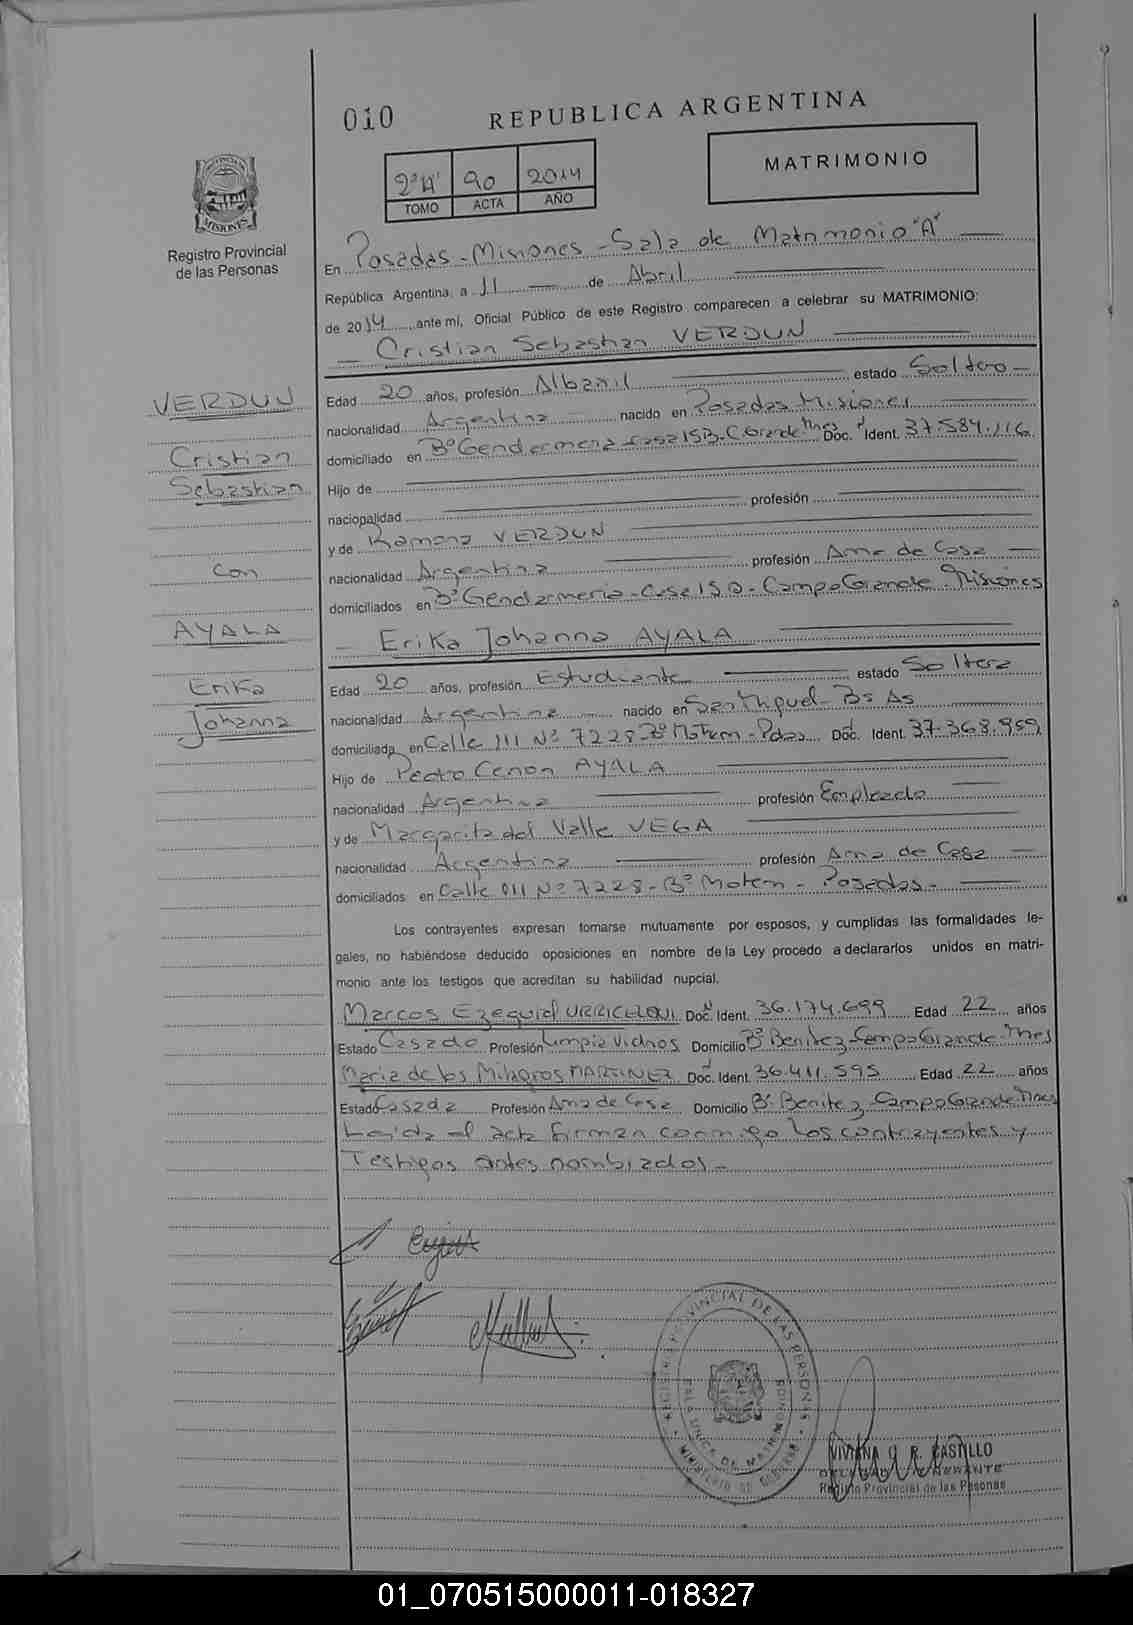 010
REPUBLICA ARGENTINA
MATRIMONIO
2º"A" 90 2014
TOMO ACTA AÑO
PROVINCIA DE
MISIONES
Registro Provincial
de las Personas
En Posadas - Misiones - Sala de Matrimonio "A"
República Argentina, a 11 de Abril
de 2014 ante mí, Oficial Público de este Registro comparecen a celebrar su MATRIMONIO:
Cristian Sebastian VERDUN
Edad 20 años, profesión Albañil estado Soltero
nacionalidad Argentina nacido en Posadas Misiones
domiciliado en Bº Gendarmeria casa 150 - C. Grande Mnes Doc. Ident. 37.584.116
Hijo de
nacionalidad profesión
y de Ramona VERDUN
nacionalidad Argentina profesión Ama de Casa
domiciliados en Bº Gendarmeria - Casa 150 - Campo Grande - Misiones
Erika Johanna AYALA
Edad 20 años, profesión Estudiante estado Soltera
nacionalidad Argentina nacido en San Miguel - Bs As
domiciliada en Calle 111 Nº 7228 Bº Motem - Pdas Doc. Ident. 37.368.959
Hijo de Pedro Cenon AYALA
nacionalidad Argentina profesión Empleado
y de Margarita del Valle VEGA
nacionalidad Argentina profesión Ama de Casa
domiciliados en Calle 111 Nº 7228 - Bº Motem - Posadas -
Los contrayentes expresan tomarse mutuamente por esposos, y cumplidas las formalidades le-
gales, no habiéndose deducido oposiciones en nombre de la Ley procedo a declararlos unidos en matri-
monio ante los testigos que acreditan su habilidad nupcial.
Marcos Ezequiel Doc. Ident. 36.174.699 Edad 22 años
Estado Casado Profesión Limpia Vidrios Domicilio Bº Benitez - Campo Grande - Mnes
Maria de los Milagros MARTINEZ Doc. Ident. 36.411.595 Edad 22 años
Estado Casada Profesión Ama de Casa Domicilio Bº Benitez Campo Grande Mnes
Leida el acta firman conmigo los contrayentes y
Testigos antes nombrados -
VERDUN
Cristian
Sebastian
con
AYALA
Erika
Johanna
REGISTRO PROVINCIAL DE LAS PERSONAS
SALA UNICA DE MATRIMONIOS
MINISTERIO DE GOBIERNO
VIVIANA R. CASTILLO
Registro Provincial de las Pesonas
01_070515000011-018327